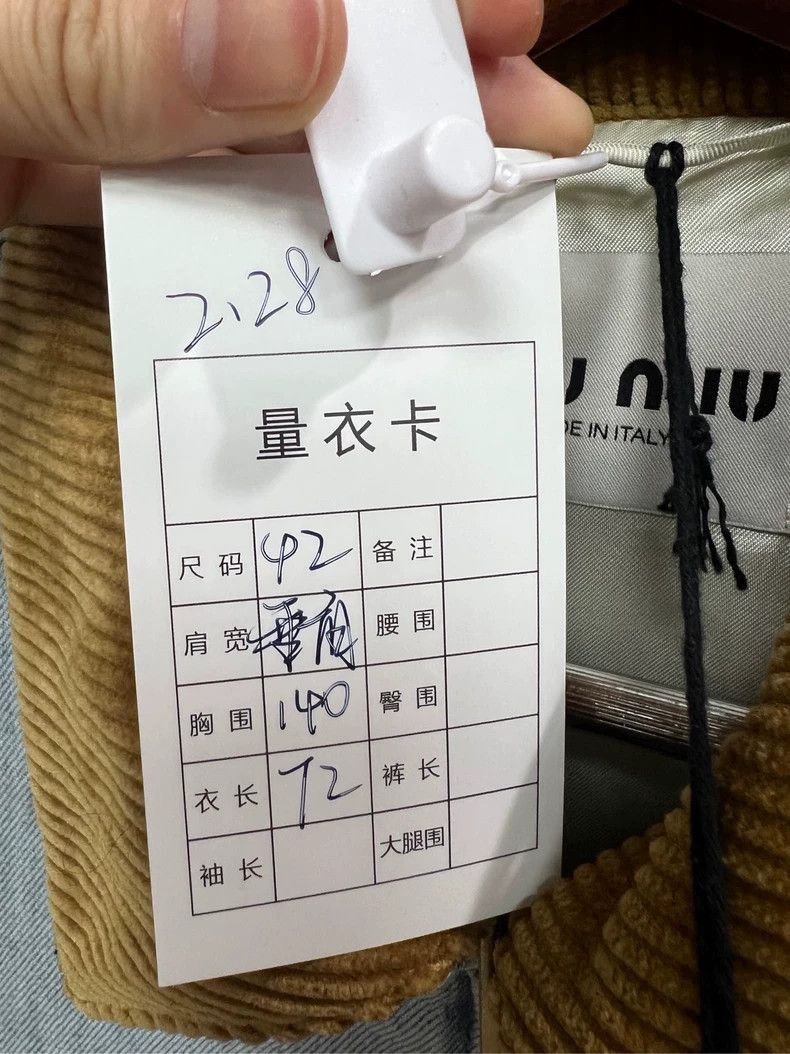 2.28
量衣卡
尺码 42 备注
肩宽 垂肩 腰围
胸围 140 臀围
衣长 72 裤长
袖长 大腿围
MADE IN ITALY